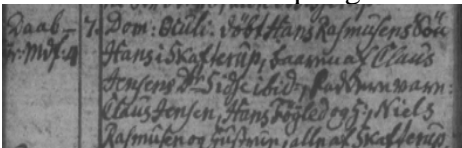 Daab 7. Dom: Oculi: døbt Hans Rasmusens Søn
Hans i Skafterup, baaren af Claus
Jensens Dr: Sidse ibid: Fadderne vare:
Claus Jensen, Hans Fögled og H:, Niels
Rasmusen og Hustrue, alle af Skafterup